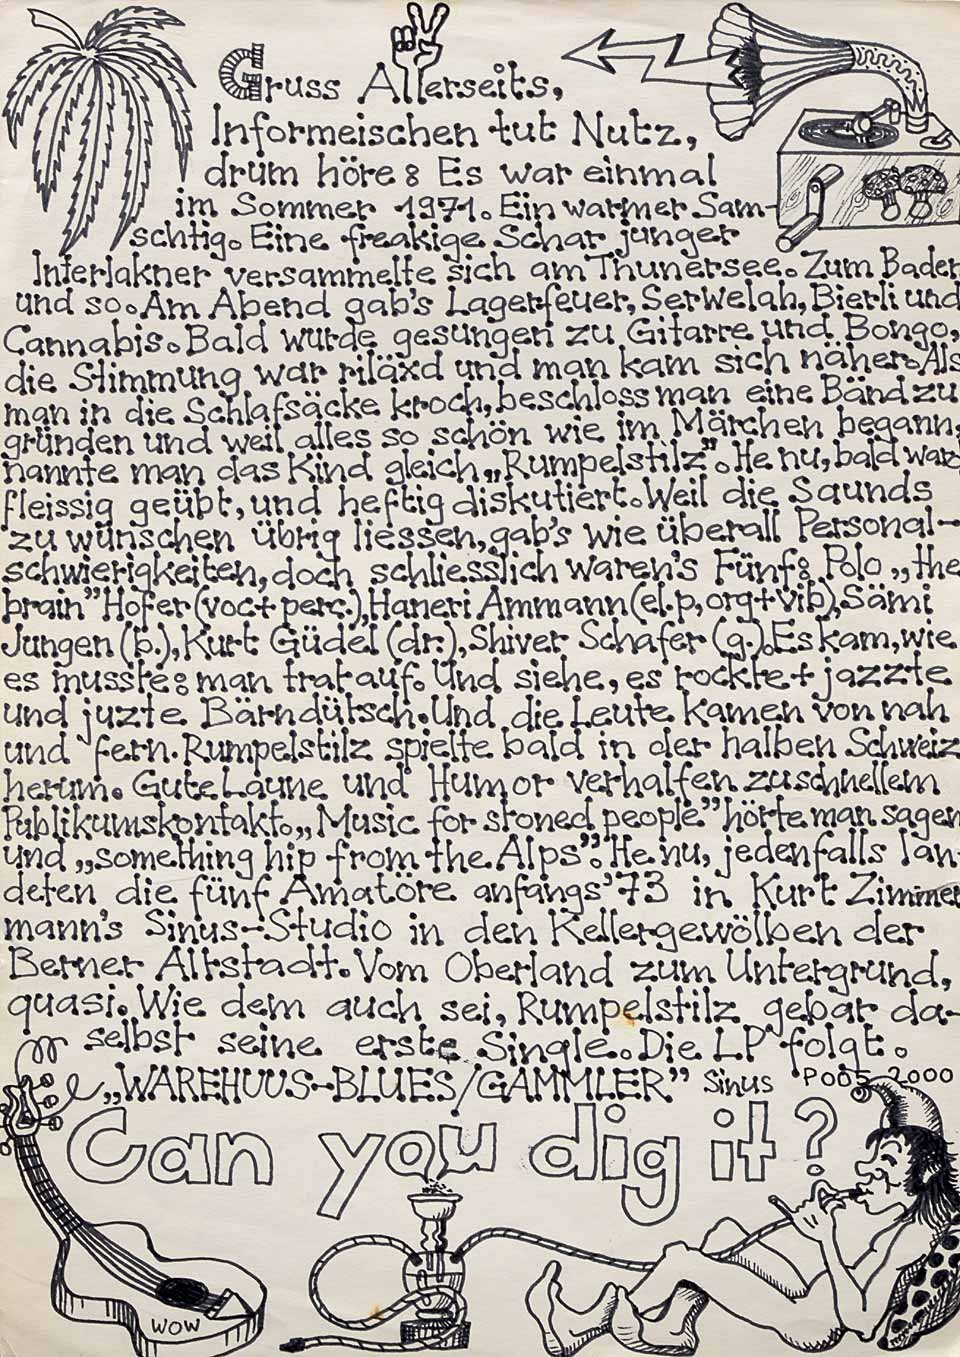 Gruss Allerseits,
Informeischen tut Nutz,
drum höre: Es war einmal
im Sommer 1971. Ein warmer Sam-
schtig. Eine freakige Schar junger
Interlakner versammelte sich am Thunersee. Zum Baden
und so. Am Abend gab's Lagerfeuer, Serwelah, Bierli und
Cannabis. Bald wurde gesungen zu Gitarre und Bongo,
die Stimmung war riläxd und man kam sich näher. Als
man in die Schlafsäcke kroch, beschloss man eine Bänd zu
gründen und weil alles so schön wie im Märchen begann,
nannte man das Kind gleich „Rumpelstilz”. He nu, bald war
fleissig geübt, und heftig diskutiert. Weil die Saunds
zu wünschen übrig liessen, gab's wie überall Personal-
schwierigkeiten, doch schliesslich waren's Fünf: Polo „the
brain” Hofer (voc + perc.), Haneri Ammann (el.p, org + vib), Sämi
Jungen (b.), Kurt Güdel (dr.), Shiver Schafer (g.). Es kam, wie
es musste: man trat auf. Und siehe, es rockte + jazzte
und juzte Bärndütsch. Und die Leute kamen von nah
und fern. Rumpelstilz spielte bald in der halben Schweiz
herum. Gute Laune und Humor verhalfen zu schnellem
Publikumskontakt. „Music for stoned people” hörte man sagen
und „something hip from the Alps”. He nu, jedenfalls lan-
deten die fünf Amatöre anfangs '73 in Kurt Zimmer
mann's Sinus-Studio in den Kellergewölben der
Berner Altstadt. Vom Oberland zum Untergrund,
quasi. Wie dem auch sei, Rumpelstilz gebar da-
selbst seine erste Single. Die LP folgt.
„WAREHUUS-BLUES/GAMMLER” Sinus POOS 2000
Can you dig it?
WOW